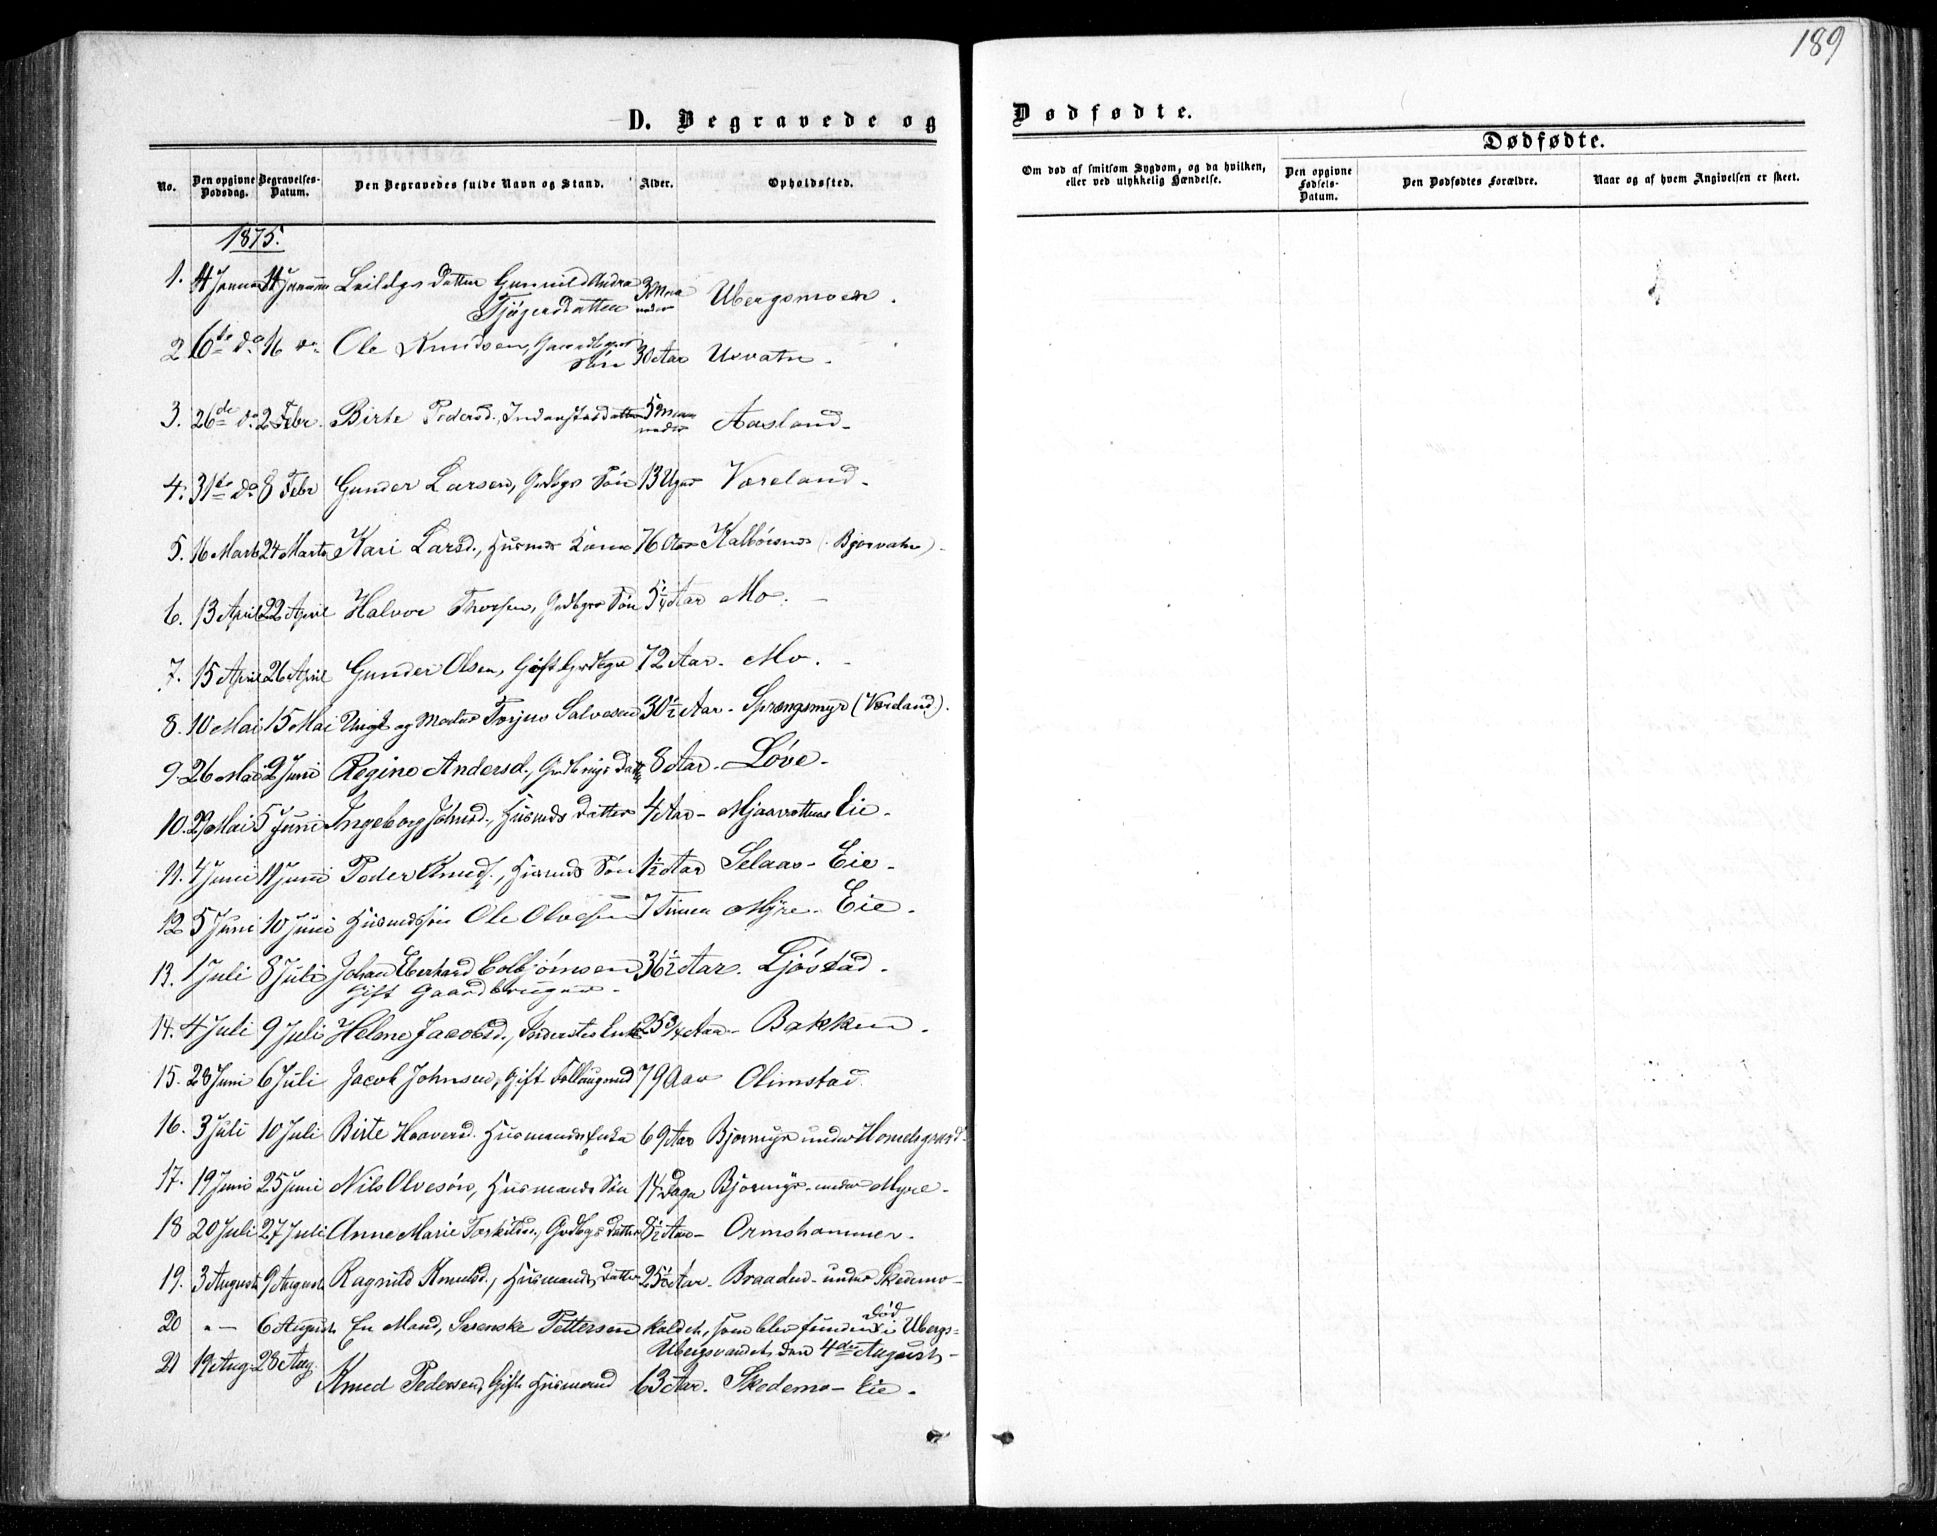 189
D. Begravede og
Dødfødte.
No. Den opgivne Dødsdag. Begravelses-Datum. Den Begravedes fulde Navn og Stand. Alder. Opholdssted.
Om død af smitsom Sygdom, og da hvilken, eller ved ulykkelig Hændelse.
Dødfødte.
Den opgivne Fødsels-Datum. Den Dødfødtes Forældre. Naar og af hvem Angivelsen er skeet.
1875.
1. 4 Januar 14 Januar Leilæg's datter Gunnild Andrea
Tjøgersdatter 3 Maaneder Ubergsmoen.
2 6te do 16 do Ole Knudsen, Gaardbgrs
Søn 30 Aar Uvatn.
3. 26de do 2 Febr. Birte Pedersd. Inderstesdatter 5 Maaneder Aasland.
4. 31te do 8 Febr Gunder Larsen, Grdbgs Søn 13 Uger Væreland.
5. 16 Marts 24 Marts Kari Larsd., Husmds Kone 76 Aar (Bjorvatn).
6. 13 April 22 April Halvor Thorsen, Grdbgrs Søn 5¼ Aar Mo.
7. 15 April 26 April Gunder Olsen, Gift Grdbgr 72 Aar. Mo.
8. 10 Mai 15 Mai Ungk og Matros Torjus Salvesen 30½ Aar. Sprængsmyr (Væreland).
9. 26 Mai 2 Juni Regine Andersd., Grdbrugs Datter 8 Aar. Løve.
10. 29 Mai 5 Juni Ingeborg Johnsd., Husmds Datter 4 Aar. Mjaavattens Eie.
11. 4 Juni 11 Juni Peder Knuds., Husmds Søn 1½ Aar Selaas Eie.
12 5 Juni 10 Juni Husmdssøn Ole Olvesen 7 Timer Myre Eie.
13. 1 Juli 8 Juli Johan Eberhard Colbjørnsen 36½ Aar. Ljøstad.
Gift Gaardbruger.
14. 4 Juli 9 Juli Helene Jacobsd., Inderstes Enke 25¾ Aar Bakken.
15. 28 Juni 6 Juli Jacob Johnsen, Gift Follaugmd 79 Aar Olimstad.
16. 3 Juli 10 Juli Birte Haaversd. Husmands Enke 69 Aar Bjormyr under Homdsgaard
17. 19 Juni 25 Juni Nils Olvesøn, Husmands Søn 14 Dage Bjormyr under Myre.
18 20 Juli 27 Juli Anne Marie Torkildsd., Grdbgs Datter 8½ Aar Ormshammer.
19. 3 August 9 August Ragnild Knudsd., Husmands Datter 25½ Aar. Braaden under Skedemo
20 " 6 August En Mand, Svenske Pettersen kaldet, som blev funden død i Ubergs=
Ubergsvandet den 4de August.
21 19 Aug 28 Aug. Knud Pedersen, Gift Husmand 63 Aar. Skedemo Eie.